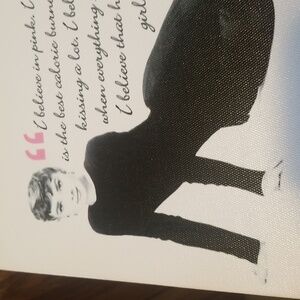 “I believe in pink. I
is the best calorie burne
kissing a lot. I bel
when everything
I believe that h
girl